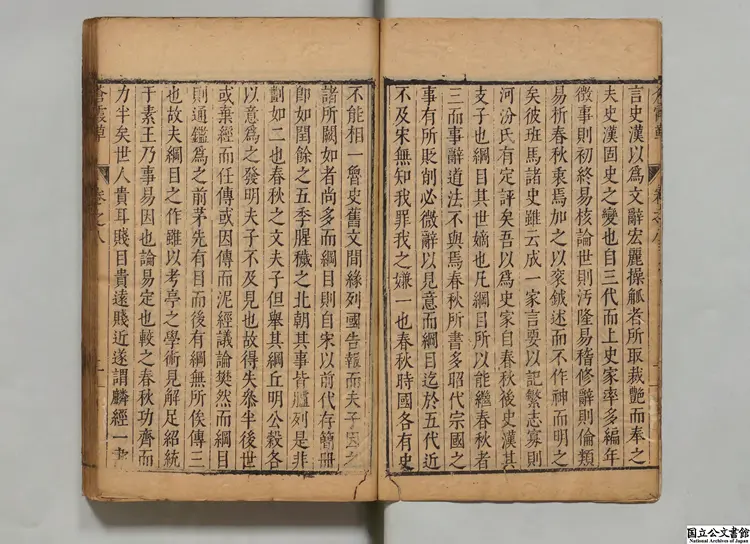 言史漢以爲文辭宏麗操觚者所取裁艶而奉之
夫史漢固史之變也自三代而上史家率多編年
徵事則初終易核論世則汚隆易稽修辭則倫類
易析春秋東焉加之以袞鉞述而不作神而明之
矣彼班馬諸史雖云成一家言要以記繁志寡則
河汾氏有定評矣吾以爲史家自春秋後史漢其
支子也綱目其世嫡也凡綱目所以能繼春秋者
三而事辭道法不與焉春秋所書多昭代宗國之
事有所貶削必微辭以見意而綱目迄於五代近
不及宋無知我罪我之嫌一也春秋時國各有史
蒼霞草
卷之八
不能相一魯史舊文間緣列國告報而夫子因之
諸所闕如者尚多而綱目則自宋以前代存簡冊
卽如閏餘之五季腥穢之北朝其事皆臚列是非
劃如二也春秋之文夫子但舉其綱丘明公穀各
以意爲之發明夫子不及見也故得失叅半後世
或棄經而任傳或因傳而泥經議論樊然而綱目
則通鑑爲之前茅先有目而後有綱無所俟傳三
也故夫綱目之作雖以考亭之學術見解足紹統
于素王乃事易因也論易定也較之春秋功齊而
力半矣世人貴耳賤目貴遠賤近遂謂麟經一書
蒼霞草
卷之八
国立公文書館
National Archives of Japan